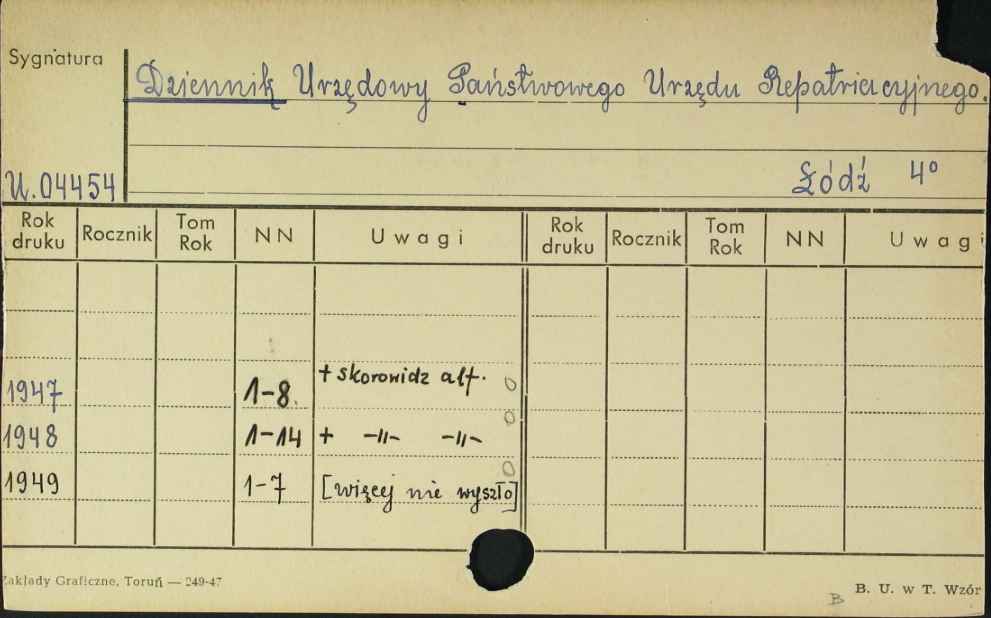 Sygnatura
Dziennik Urzędowy Państwowego Urzędu Repatriacyjnego.
U.04454
Łódź 4°
Rok druku Rocznik Tom Rok NN Uwagi Rok druku Rocznik Tom Rok NN Uwagi
1947 1-8. + skorowidz alf. 0
1948 1-14 + -〃- -〃- 0
1949 1-7 [więcej nie wyszło] 0
Zakłady Graficzne, Toruń — 249-47
B B. U. w T. Wzór